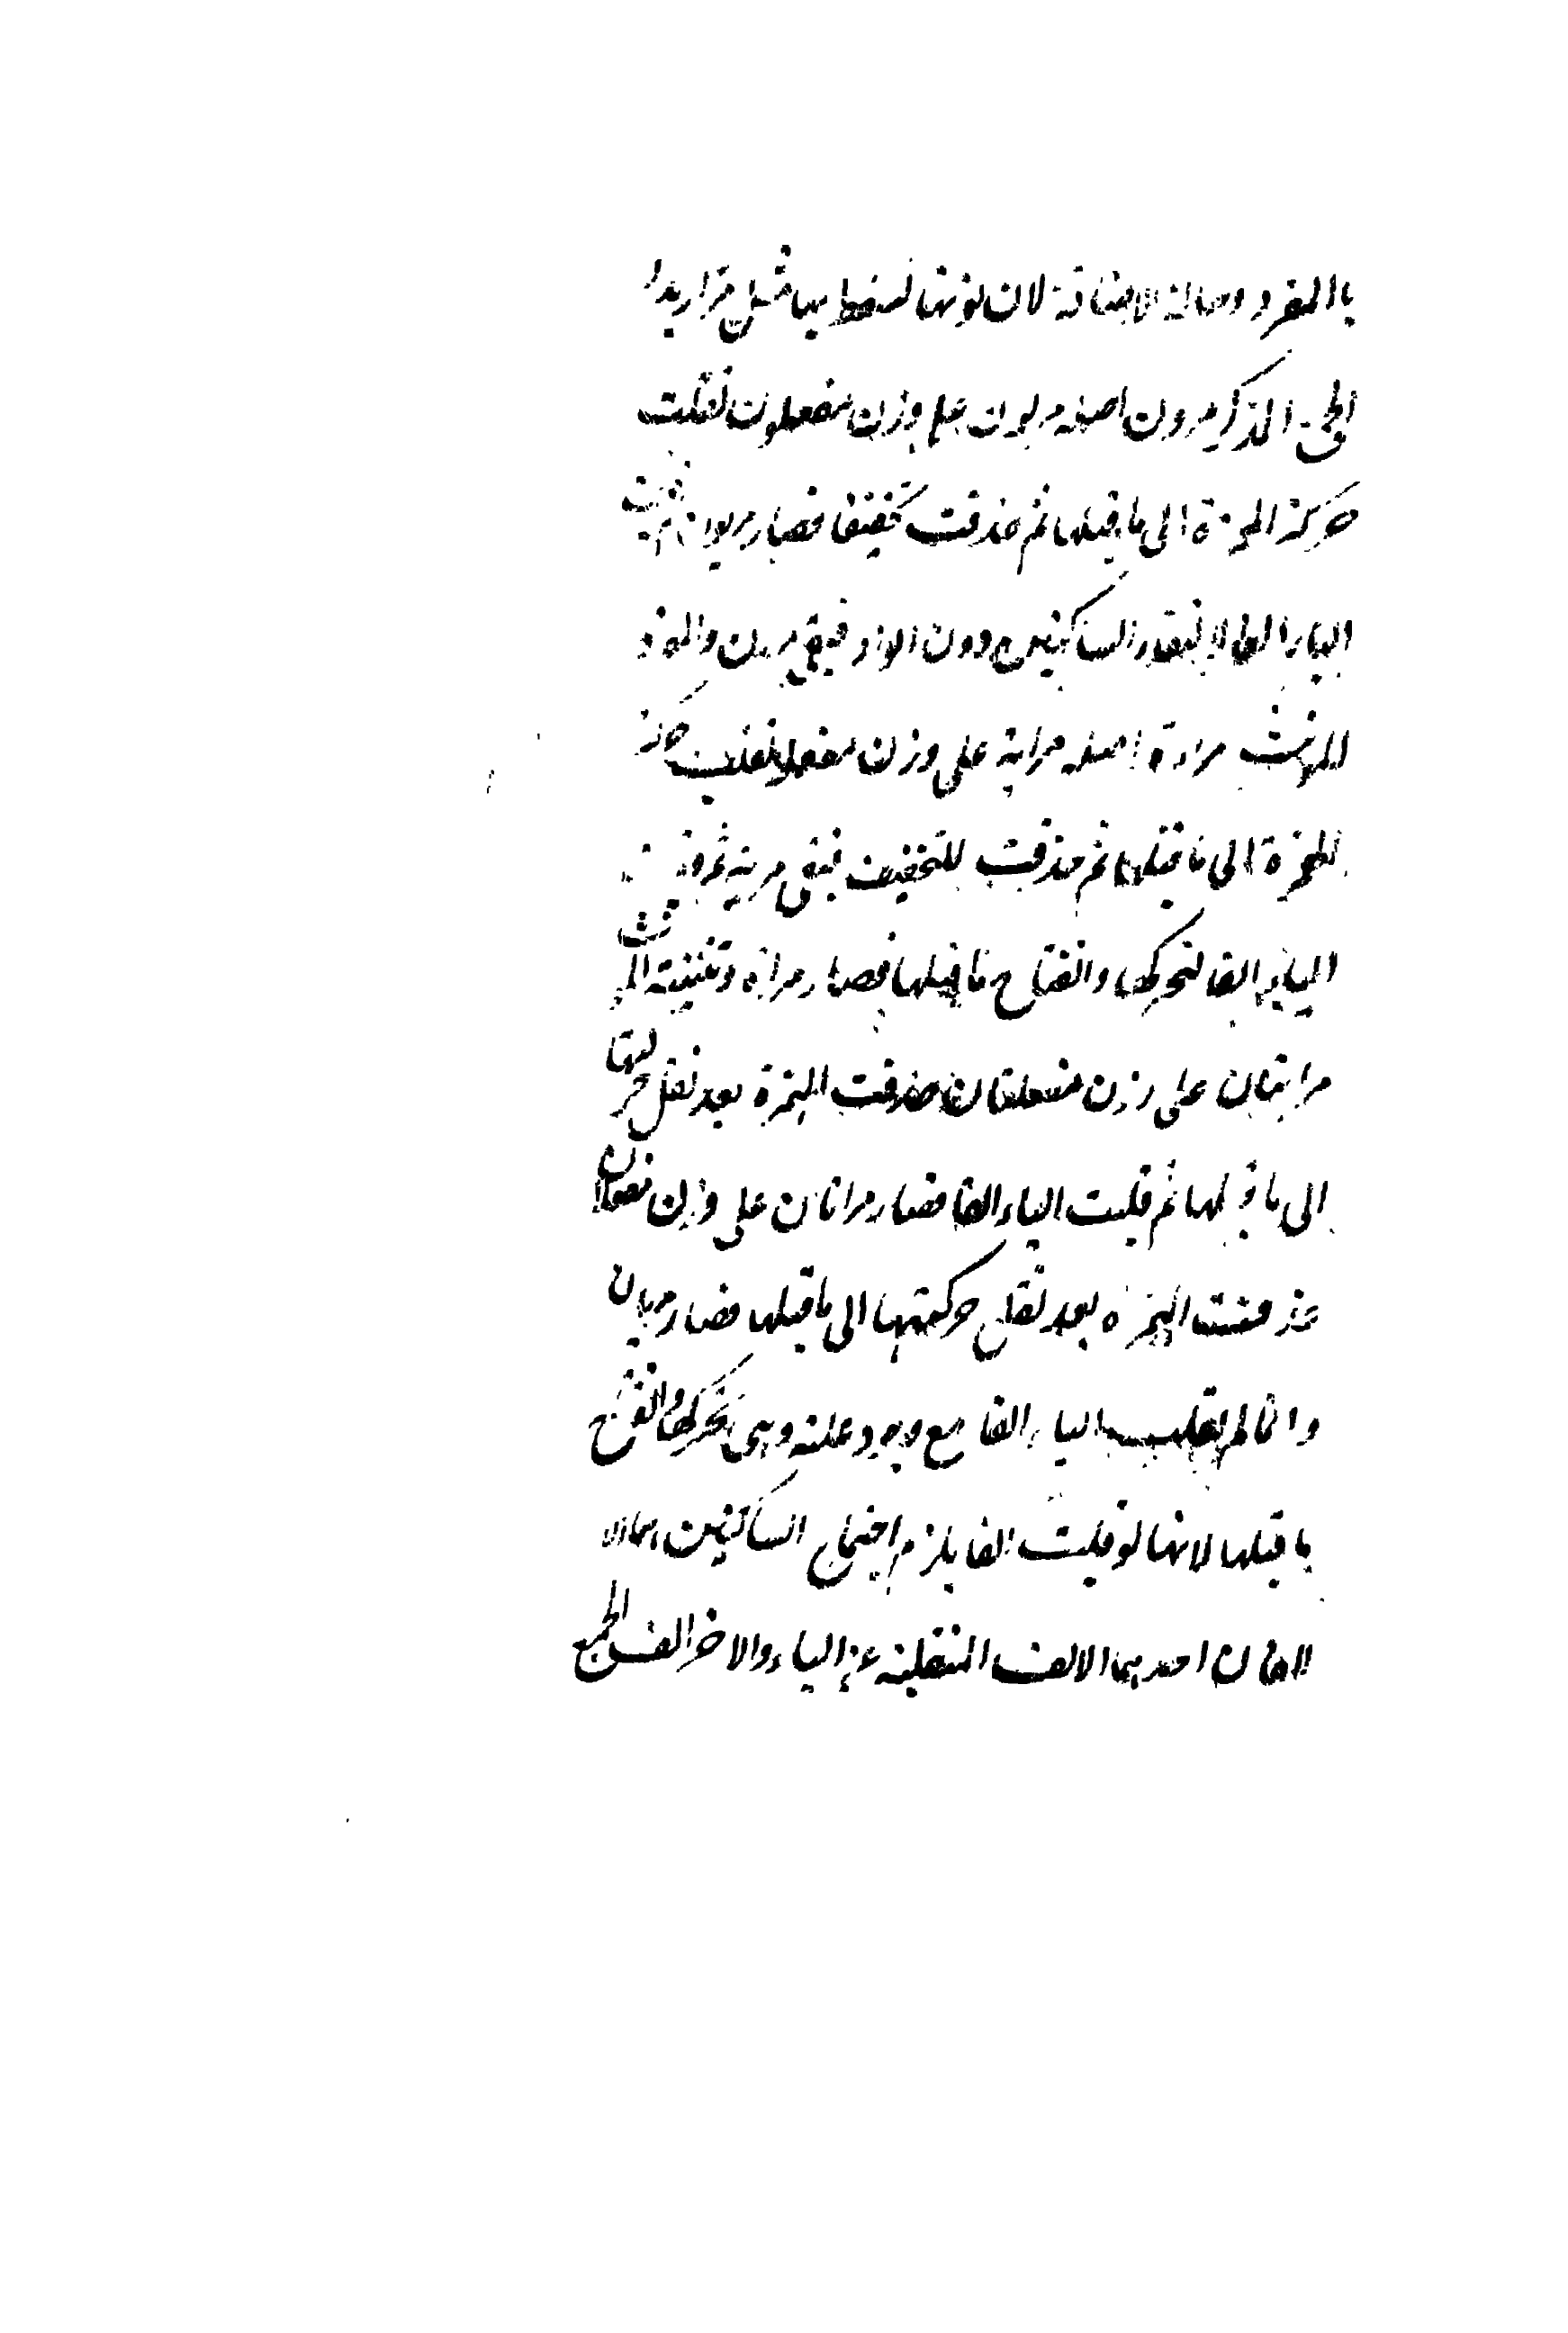 بالمفرد وحالة الاضافة لان نونها تسقط بها مثل مرا زيدا
الجمع المذكر مرون اصله مريون على وزن مفعلون نقلت
حركة الهمزة الى ما قبلها ثم حذفت تخفيفا فصار مريون ثم حذفت
الياء لالتقاء الساكنين دون الواو فبقي مرون والمفرد
المؤنث مراة اصله مراية على وزن مفعلة نقلت حركة
الهمزة الى ما قبلها ثم حذفت للتخفيف فبقى مرية ثم قلبت
الياء الفا لتحركها وانفتاح ما قبلها فصار مراة وتثنيته
مرايتان على وزن مفعلتان حذفت الهمزة بعد نقل حركتها
الى ما قبلها ثم قلبت الياء الفا فصار مراتان على وزن
حذفت الهمزة بعد نقل حركتها الى ما قبلها فصار مريان
وانما لم تقلب الياء الفا مع وجود علته وهى تحركها وانفتاح
ما قبلها لانها لو قلبت الفا يلزم اجتماع الساكنين
الالفان احديهما الالف المنقلبة عن الياء والاخر الف الجمع